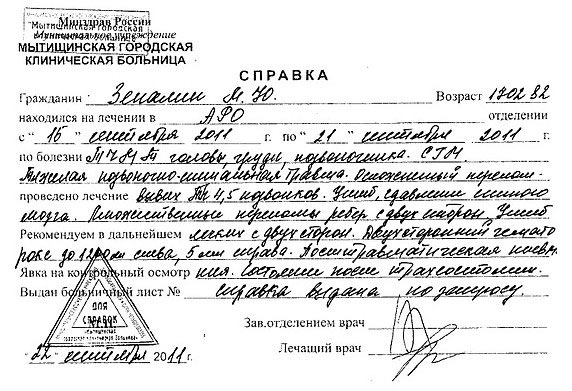 Минздрав России
Мытищинская городская
Муниципальное учреждение
МЫТИЩИНСКАЯ ГОРОДСКАЯ
КЛИНИЧЕСКАЯ БОЛЬНИЦА
СПРАВКА
Гражданин Зеналин М. Ю. Возраст 170282
находился на лечении в АРО отделении
с "15" сентября 2011 г. по "21" сентября 2011 г.
по болезни головы, груди, позвоночника. СГМ
Тяжелая позвоночно-спинальная травма. Осложненный перелом-
проведено лечение вывих Th 4,5 позвонков. Ушиб, сдавление спинного
мозга. Множественные переломы ребер с двух сторон, Ушиб
Рекомендуем в дальнейшем легких с двух сторон. Двухсторонний гемато
ракс до 1200 мл слева, 5 мл справа. Посттравматическая пневм.
Явка на контрольный осмотр ния. Состояние после трахеостомии.
Выдан больничный лист № справка выдана по запросу.
ДЛЯ
СПРАВОК
Зав.отделением врач
Лечащий врач
"22" сентября 2011 г.